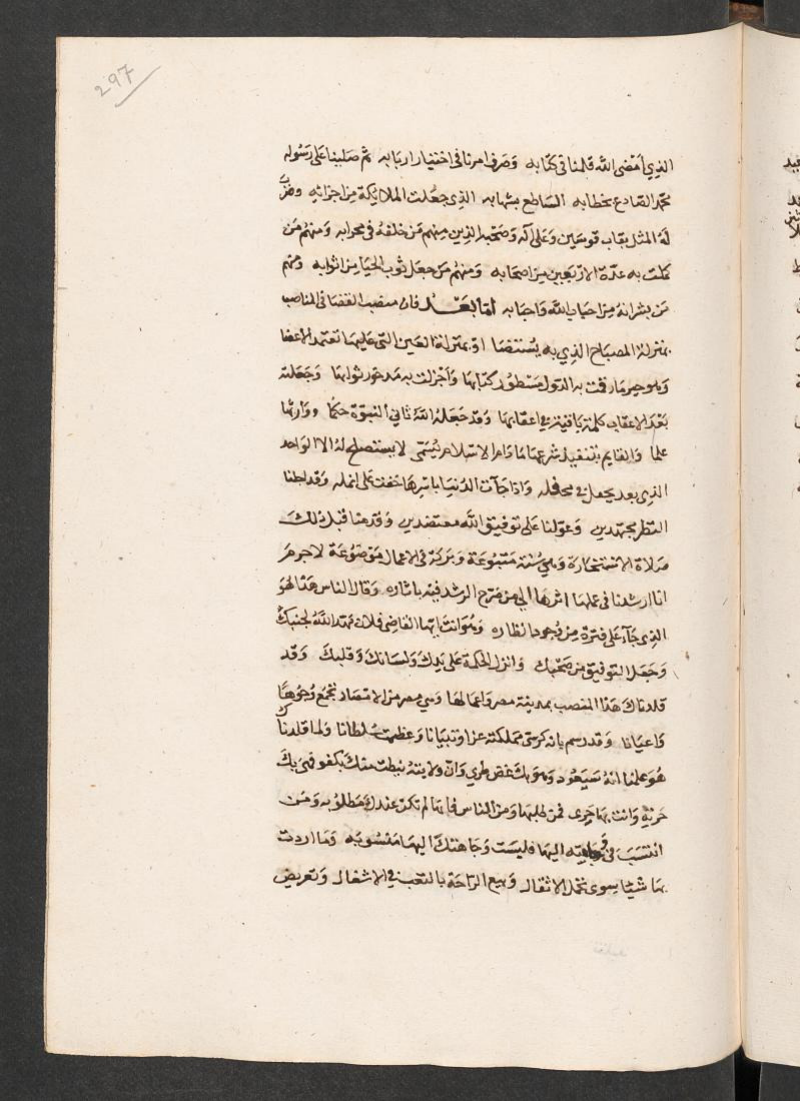 297
الذي أمضى الله قلمنا في كتابه وصرف امرنا في اختيار اربابه ثم صلينا على رسوله
محمد الصادع بخطابه الساطع بشهابه الذي جعلت الملائكة من احزابه وضرب
له المثل بقاب قوسين وعلى آله وصحبه الذين منهم من خلفه في محرابه ومنهم من
كملت به عدة الاربعين من اصحابه ومنهم من جعل ثوب الحيا من اثوابه ومنهم
من بشر انه من احباب الله واحبابه اما بعد فان منصب القضا في المناصب
بمنزلة المصباح الذي به يستضا او بمنزلة العين التي عليها تعتمد الاعضا
وهو خير ما رقت به الدول مسطور كتابها واجزلت به مدخور ثوابها وجعلته
بعد الاعقاب كلمة باقية في اعقابها وقد جعله الله ثاني النبوة حكما ووارثها
علما والقايم بتنفيذ شرعها ما دام الاسلام يسمى لا يستصلح له الا الواحد
الذي يعد بجحفل في محفله واذا جآت الدنيا باسرها خفت على انمله وقد لطنا
النظر مجتهدين وعولنا على توفيق الله معتضدين وقدمنا قبل ذلك
صلاة الاستخارة وهي سنة متبوعة وبركة في الاعمال موضوعة لا جرم
انا ارشدنا في عملها اثرها الى من صرح الرشد فيه باثاره وقال الناس هذا هو
الذي جآء على فترة من وجود انظاره وهو انت ايها القاضي فلان مهد الله لجنبك
وجعل التوفيق من صحبك وانزل الحكمة على يدك ولسانك وقلبك وقد
قلدناك هذا المنصب بمدينة مصر واعمالها وهي مصر من الامصار تجمع وجوها
واعيانا وقد رسم بانه كرسي مملكته عزا وتبيانا وعظمت سلطانا ولما قلدناك
هو علمنا انه سيعود وهو بك غض طري وان ولايته نيطت منك بكفو فهي بك
حرية وانت بها حري فمن طلبها ومن الناس فانها لم تكن عندك مطلوبه ومن
انتسب في وجاهته اليها فليست وجاهتك اليها منسوبه وما اردت
بها شيئا سوى تحمل الاثقال وبيع الراحة بالتعب في الاشغال وتعريض